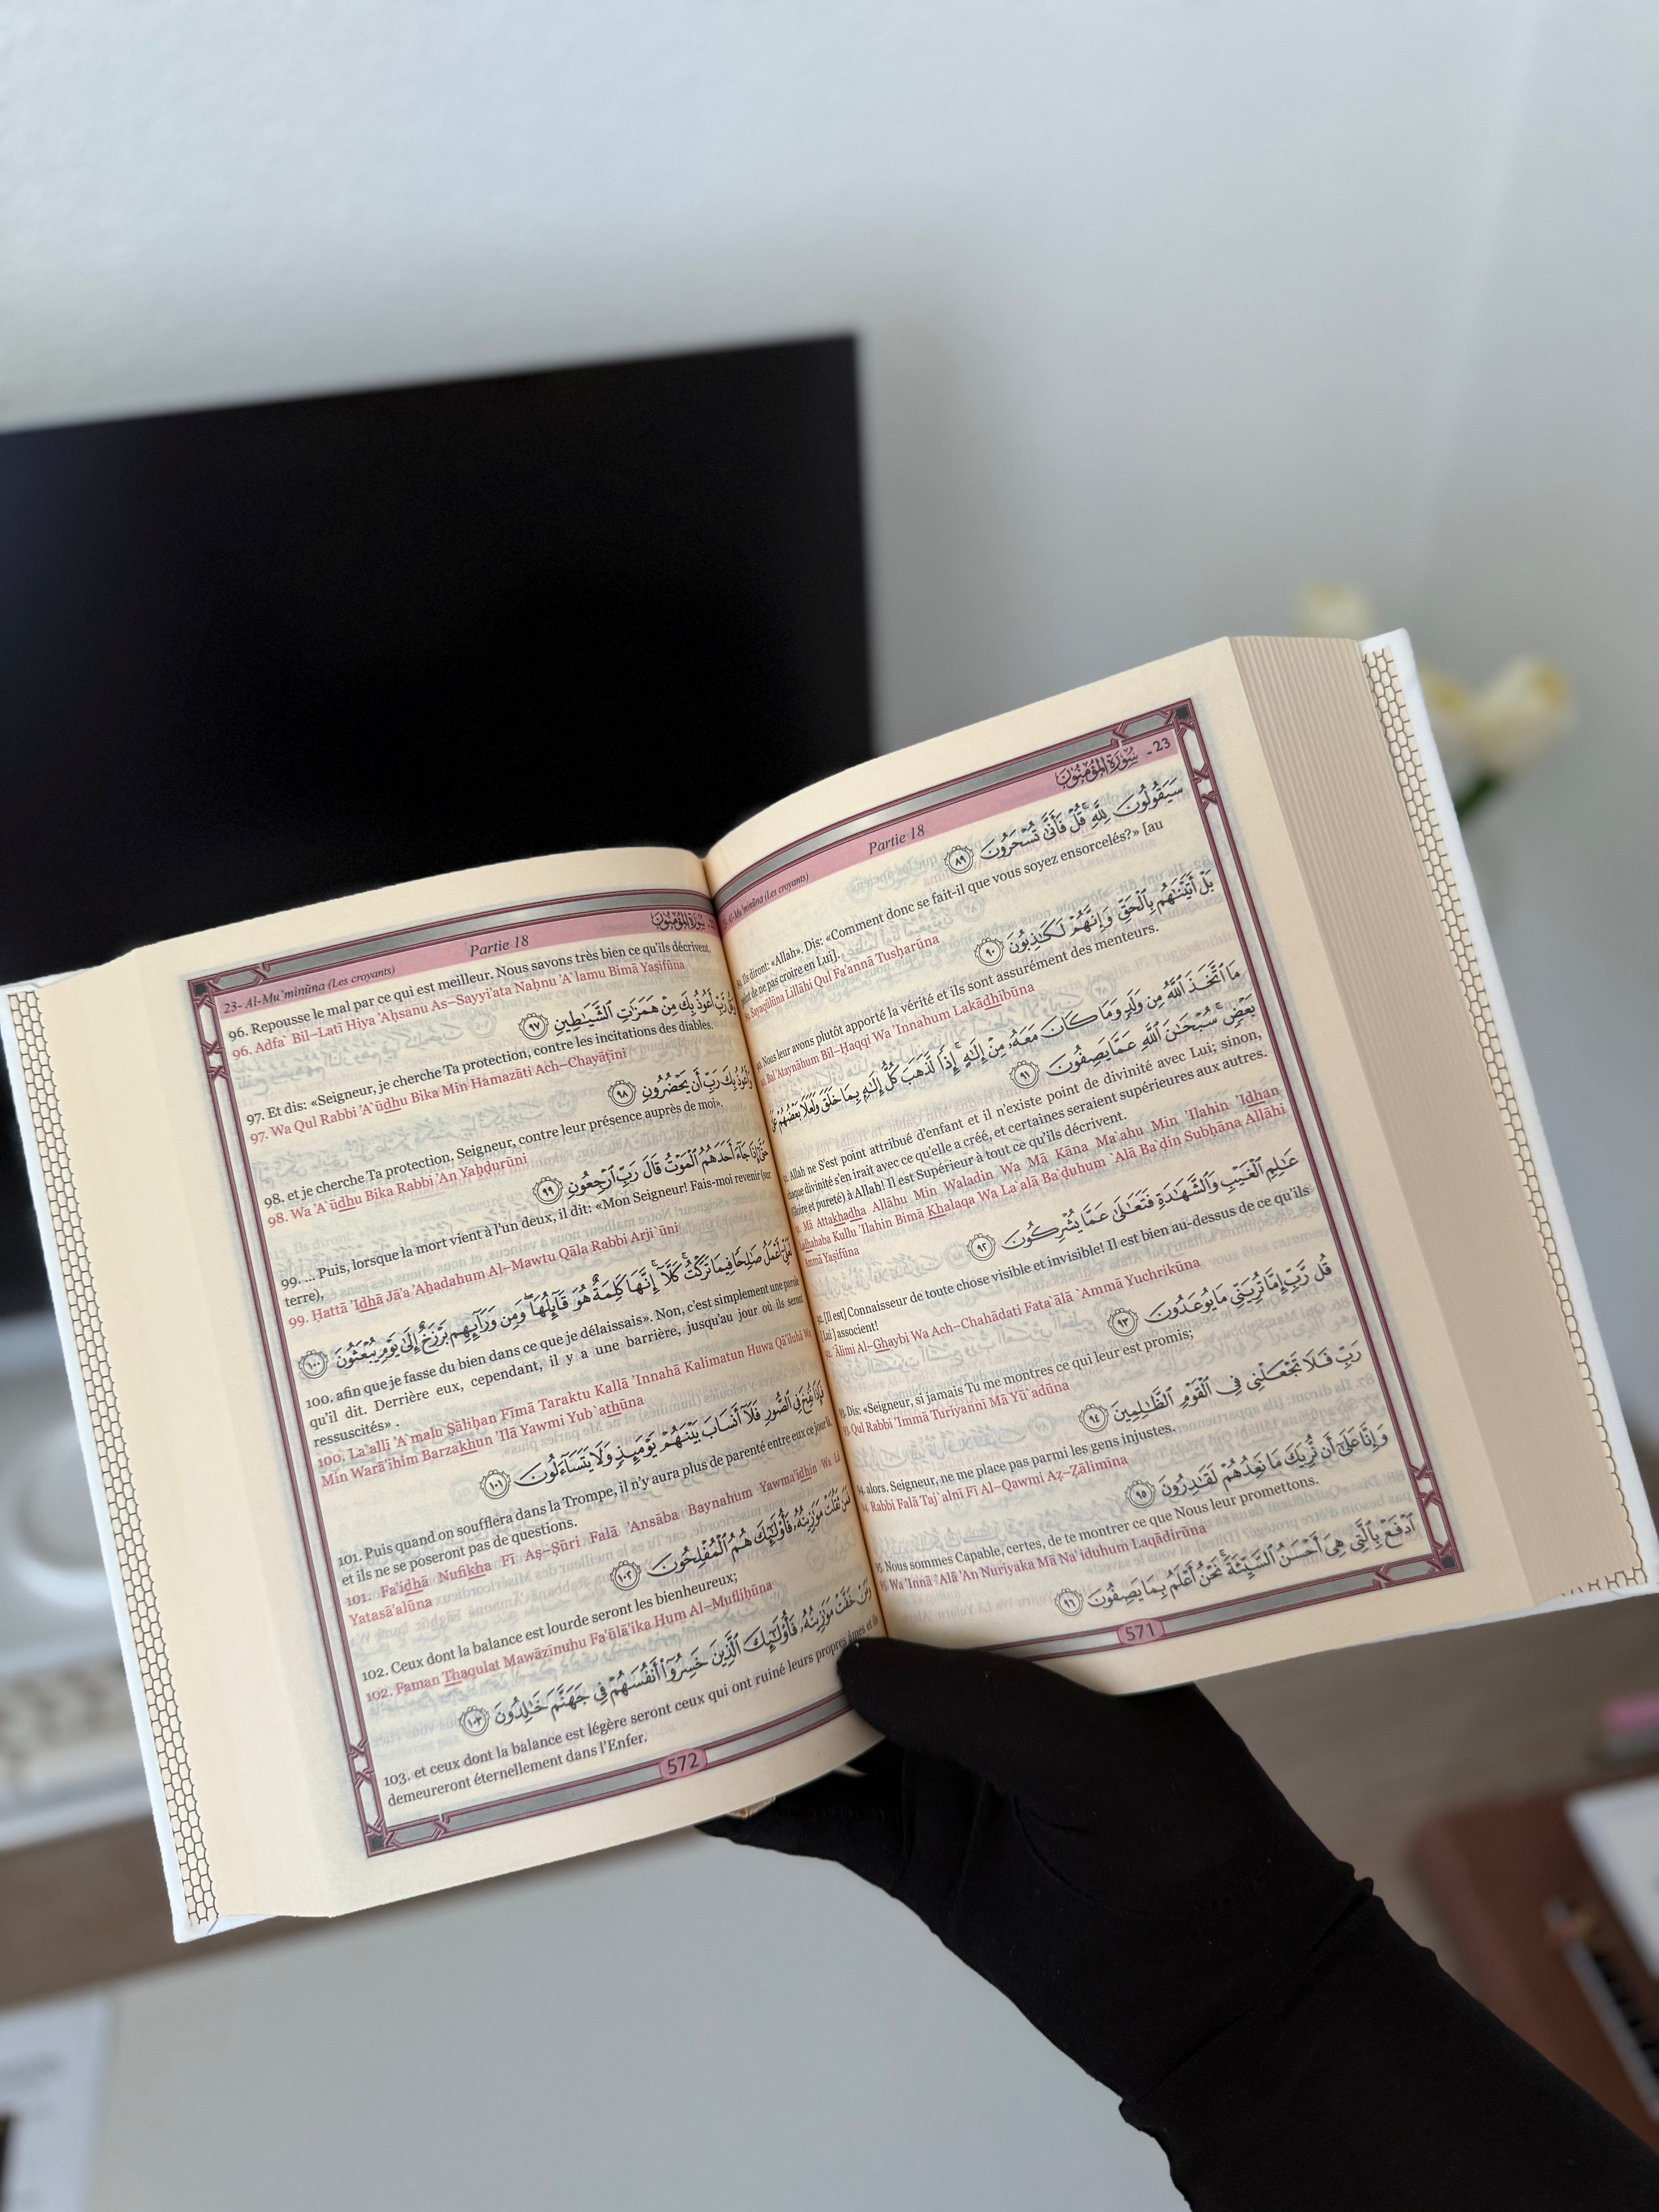 Al-Mu'minūna (Les croyants) Partie 18 سُورَةُ المُؤْمِنُون - 23
سَيَقُولُونَ لِلَّهِ ۚ قُلْ فَأَنَّىٰ تُسْحَرُونَ ٨٩
Ils diront: «Allah». Dis: «Comment donc se fait-il que vous soyez ensorcelés?» [au
de ne pas croire en Lui].
Sayaqūlūna Lillāhi Qul Fa'annā Tusḥarūna
بَلْ أَتَيْنَٰهُم بِٱلْحَقِّ وَإِنَّهُمْ لَكَٰذِبُونَ ٩٠
Nous leur avons plutôt apporté la vérité et ils sont assurément des menteurs.
Bal 'Ataynāhum Bil–Ḥaqqi Wa 'Innahum Lakādhibūna
مَا ٱتَّخَذَ ٱللَّهُ مِن وَلَدٍ وَمَا كَانَ مَعَهُۥ مِنْ إِلَٰهٍ ۚ إِذًا لَّذَهَبَ كُلُّ إِلَٰهٍۭ بِمَا خَلَقَ وَلَعَلَا بَعْضُهُمْ عَلَىٰ
بَعْضٍ ۚ سُبْحَٰنَ ٱللَّهِ عَمَّا يَصِفُونَ ٩١
Allah ne S'est point attribué d'enfant et il n'existe point de divinité avec Lui; sinon,
chaque divinité s'en irait avec ce qu'elle a créé, et certaines seraient supérieures aux autres.
(Gloire et pureté) à Allah! Il est Supérieur à tout ce qu'ils décrivent.
Mā Attakhadha Allāhu Min Waladin Wa Mā Kāna Ma`ahu Min 'Ilahin 'Idhan
Ladhahaba Kullu 'Ilahin Bimā Khalaqa Wa La`alā Ba`ḍuhum `Alā Ba`ḍin Subḥāna Allāhi
`Ammā Yaṣifūna
عَٰلِمِ ٱلْغَيْبِ وَٱلشَّهَٰدَةِ فَتَعَٰلَىٰ عَمَّا يُشْرِكُونَ ٩٢
[Il est] Connaisseur de toute chose visible et invisible! Il est bien au-dessus de ce qu'ils
[Lui] associent!
`Ālimi Al–Ghaybi Wa Ach–Chahādati Fata`ālā `Ammā Yuchrikūna
قُل رَّبِّ إِمَّا تُرِيَنِّى مَا يُوعَدُونَ ٩٣
Dis: «Seigneur, si jamais Tu me montres ce qui leur est promis;
Qul Rabbi 'Immā Turiyannī Mā Yū`adūna
رَبِّ فَلَا تَجْعَلْنِى فِى ٱلْقَوْمِ ٱلظَّٰلِمِينَ ٩٤
alors. Seigneur, ne me place pas parmi les gens injustes.
Rabbi Falā Taj`alnī Fī Al–Qawmi Aẓ–Ẓālimīna
وَإِنَّا عَلَىٰٓ أَن نُّرِيَكَ مَا نَعِدُهُمْ لَقَٰدِرُونَ ٩٥
Nous sommes Capable, certes, de te montrer ce que Nous leur promettons.
Wa 'Innā `Alā 'An Nuriyaka Mā Na`iduhum Laqādirūna
ٱدْفَعْ بِٱلَّتِى هِىَ أَحْسَنُ ٱلسَّيِّئَةَ ۚ نَحْنُ أَعْلَمُ بِمَا يَصِفُونَ ٩٦
571
23- Al-Mu'minūna (Les croyants) Partie 18 سُورَةُ المُؤْمِنُون
96. Repousse le mal par ce qui est meilleur. Nous savons très bien ce qu'ils décrivent.
96. Adfa` Bil–Latī Hiya 'Aḥsanu As–Sayyi'ata Naḥnu 'A`lamu Bimā Yaṣifūna
وَقُل رَّبِّ أَعُوذُ بِكَ مِنْ هَمَزَٰتِ ٱلشَّيَٰطِينِ ٩٧
97. Et dis: «Seigneur, je cherche Ta protection, contre les incitations des diables.
97. Wa Qul Rabbi 'A`ūdhu Bika Min Hamazāti Ach–Chayāṭīni
وَأَعُوذُ بِكَ رَبِّ أَن يَحْضُرُونِ ٩٨
98. et je cherche Ta protection, Seigneur, contre leur présence auprès de moi».
98. Wa 'A`ūdhu Bika Rabbi 'An Yaḥḍurūni
حَتَّىٰٓ إِذَا جَآءَ أَحَدَهُمُ ٱلْمَوْتُ قَالَ رَبِّ ٱرْجِعُونِ ٩٩
99. ... Puis, lorsque la mort vient à l'un deux, il dit: «Mon Seigneur! Fais-moi revenir (sur
terre),
99. Ḥattā 'Idhā Jā'a 'Aḥadahum Al–Mawtu Qāla Rabbi Arji`ūni
لَعَلِّىٓ أَعْمَلُ صَٰلِحًا فِيمَا تَرَكْتُ ۚ كَلَّآ ۚ إِنَّهَا كَلِمَةٌ هُوَ قَآئِلُهَا ۖ وَمِن وَرَآئِهِم بَرْزَخٌ إِلَىٰ يَوْمِ يُبْعَثُونَ ١٠٠
100. afin que je fasse du bien dans ce que je délaissais». Non, c'est simplement une parole
qu'il dit. Derrière eux, cependant, il y a une barrière, jusqu'au jour où ils seront
ressuscités» .
100. La`allī 'A`malu Ṣāliḥan Fīmā Taraktu Kallā 'Innahā Kalimatun Huwa Qā'iluhā Wa
Min Warā'ihim Barzakhun 'Ilā Yawmi Yub`athūna
فَإِذَا نُفِخَ فِى ٱلصُّورِ فَلَآ أَنسَابَ بَيْنَهُمْ يَوْمَئِذٍ وَلَا يَتَسَآءَلُونَ ١٠١
101. Puis quand on soufflera dans la Trompe, il n'y aura plus de parenté entre eux ce jour là,
et ils ne se poseront pas de questions.
101. Fa'idhā Nufikha Fī Aṣ–Ṣūri Falā 'Ansāba Baynahum Yawma'idhin Wa Lā
Yatasā'alūna
فَمَن ثَقُلَتْ مَوَٰزِينُهُۥ فَأُو۟لَٰٓئِكَ هُمُ ٱلْمُفْلِحُونَ ١٠٢
102. Ceux dont la balance est lourde seront les bienheureux;
102. Faman Thaqulat Mawāzīnuhu Fa'ūlā'ika Hum Al–Mufliḥūna
وَمَنْ خَفَّتْ مَوَٰزِينُهُۥ فَأُو۟لَٰٓئِكَ ٱلَّذِينَ خَسِرُوٓا۟ أَنفُسَهُمْ فِى جَهَنَّمَ خَٰلِدُونَ ١٠٣
103. et ceux dont la balance est légère seront ceux qui ont ruiné leurs propres âmes et ils
demeureront éternellement dans l'Enfer.
572